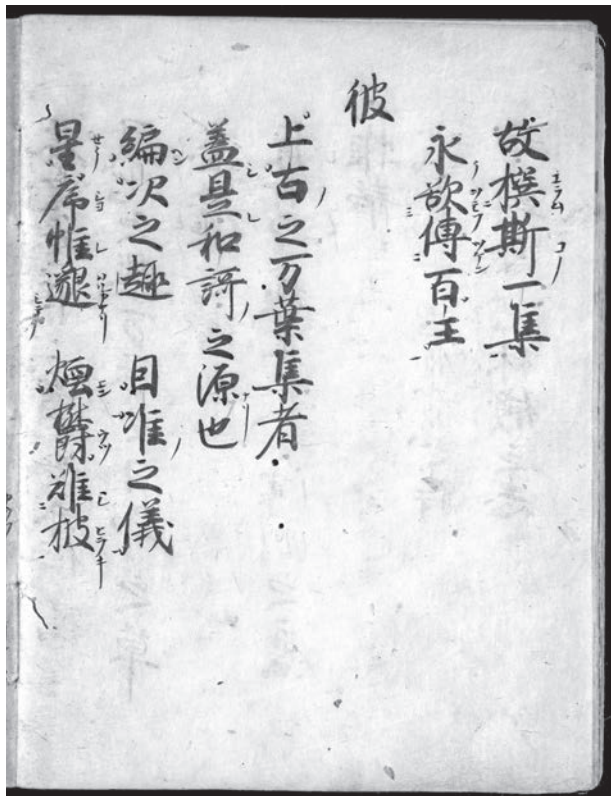 故撰斯一集
永欲傳百王
彼
上古之万葉集者
蓋是和謌之源也
編次之趣 因准之儀
星序惟邈 煙欝難披